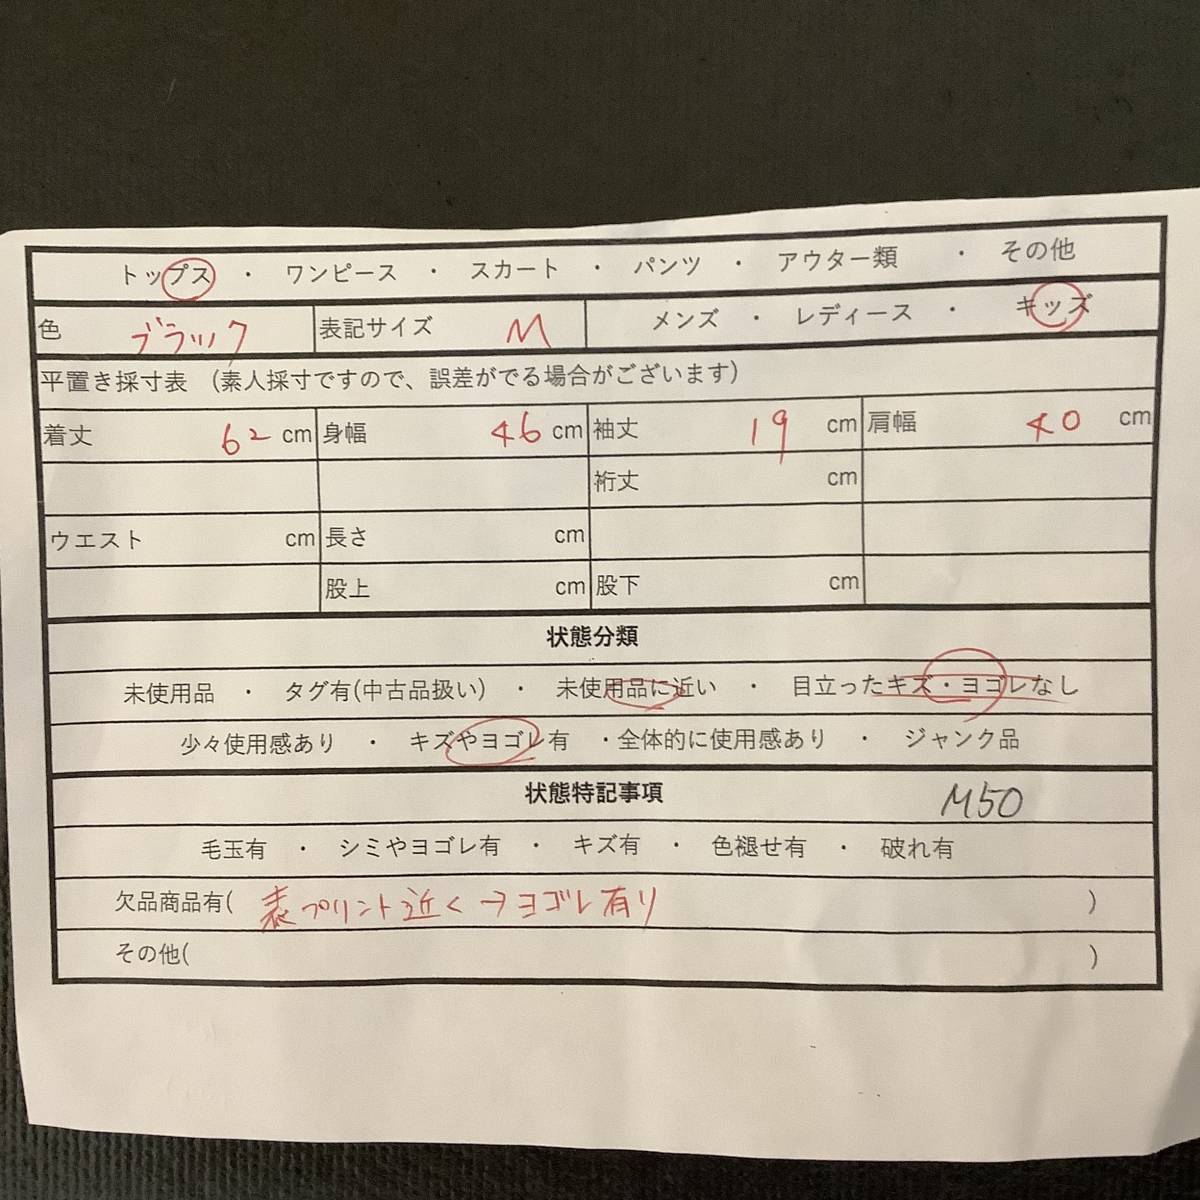 トップス ・ ワンピース ・ スカート ・ パンツ ・ アウター類 ・ その他
色 ブラック 表記サイズ M メンズ ・ レディース ・ キッズ
平置き採寸表 (素人採寸ですので、誤差がでる場合がございます)
着丈 62 cm 身幅 46 cm 袖丈 19 cm 肩幅 40 cm
裄丈 cm
ウエスト cm 長さ cm
股上 cm 股下 cm
状態分類
未使用品 ・ タグ有(中古品扱い) ・ 未使用品に近い ・ 目立ったキズ・ヨゴレなし
少々使用感あり ・ キズやヨゴレ有 ・全体的に使用感あり ・ ジャンク品
状態特記事項 M50
毛玉有 ・ シミやヨゴレ有 ・ キズ有 ・ 色褪せ有 ・ 破れ有
欠品商品有( 表プリント近く→ヨゴレ有り )
その他( )